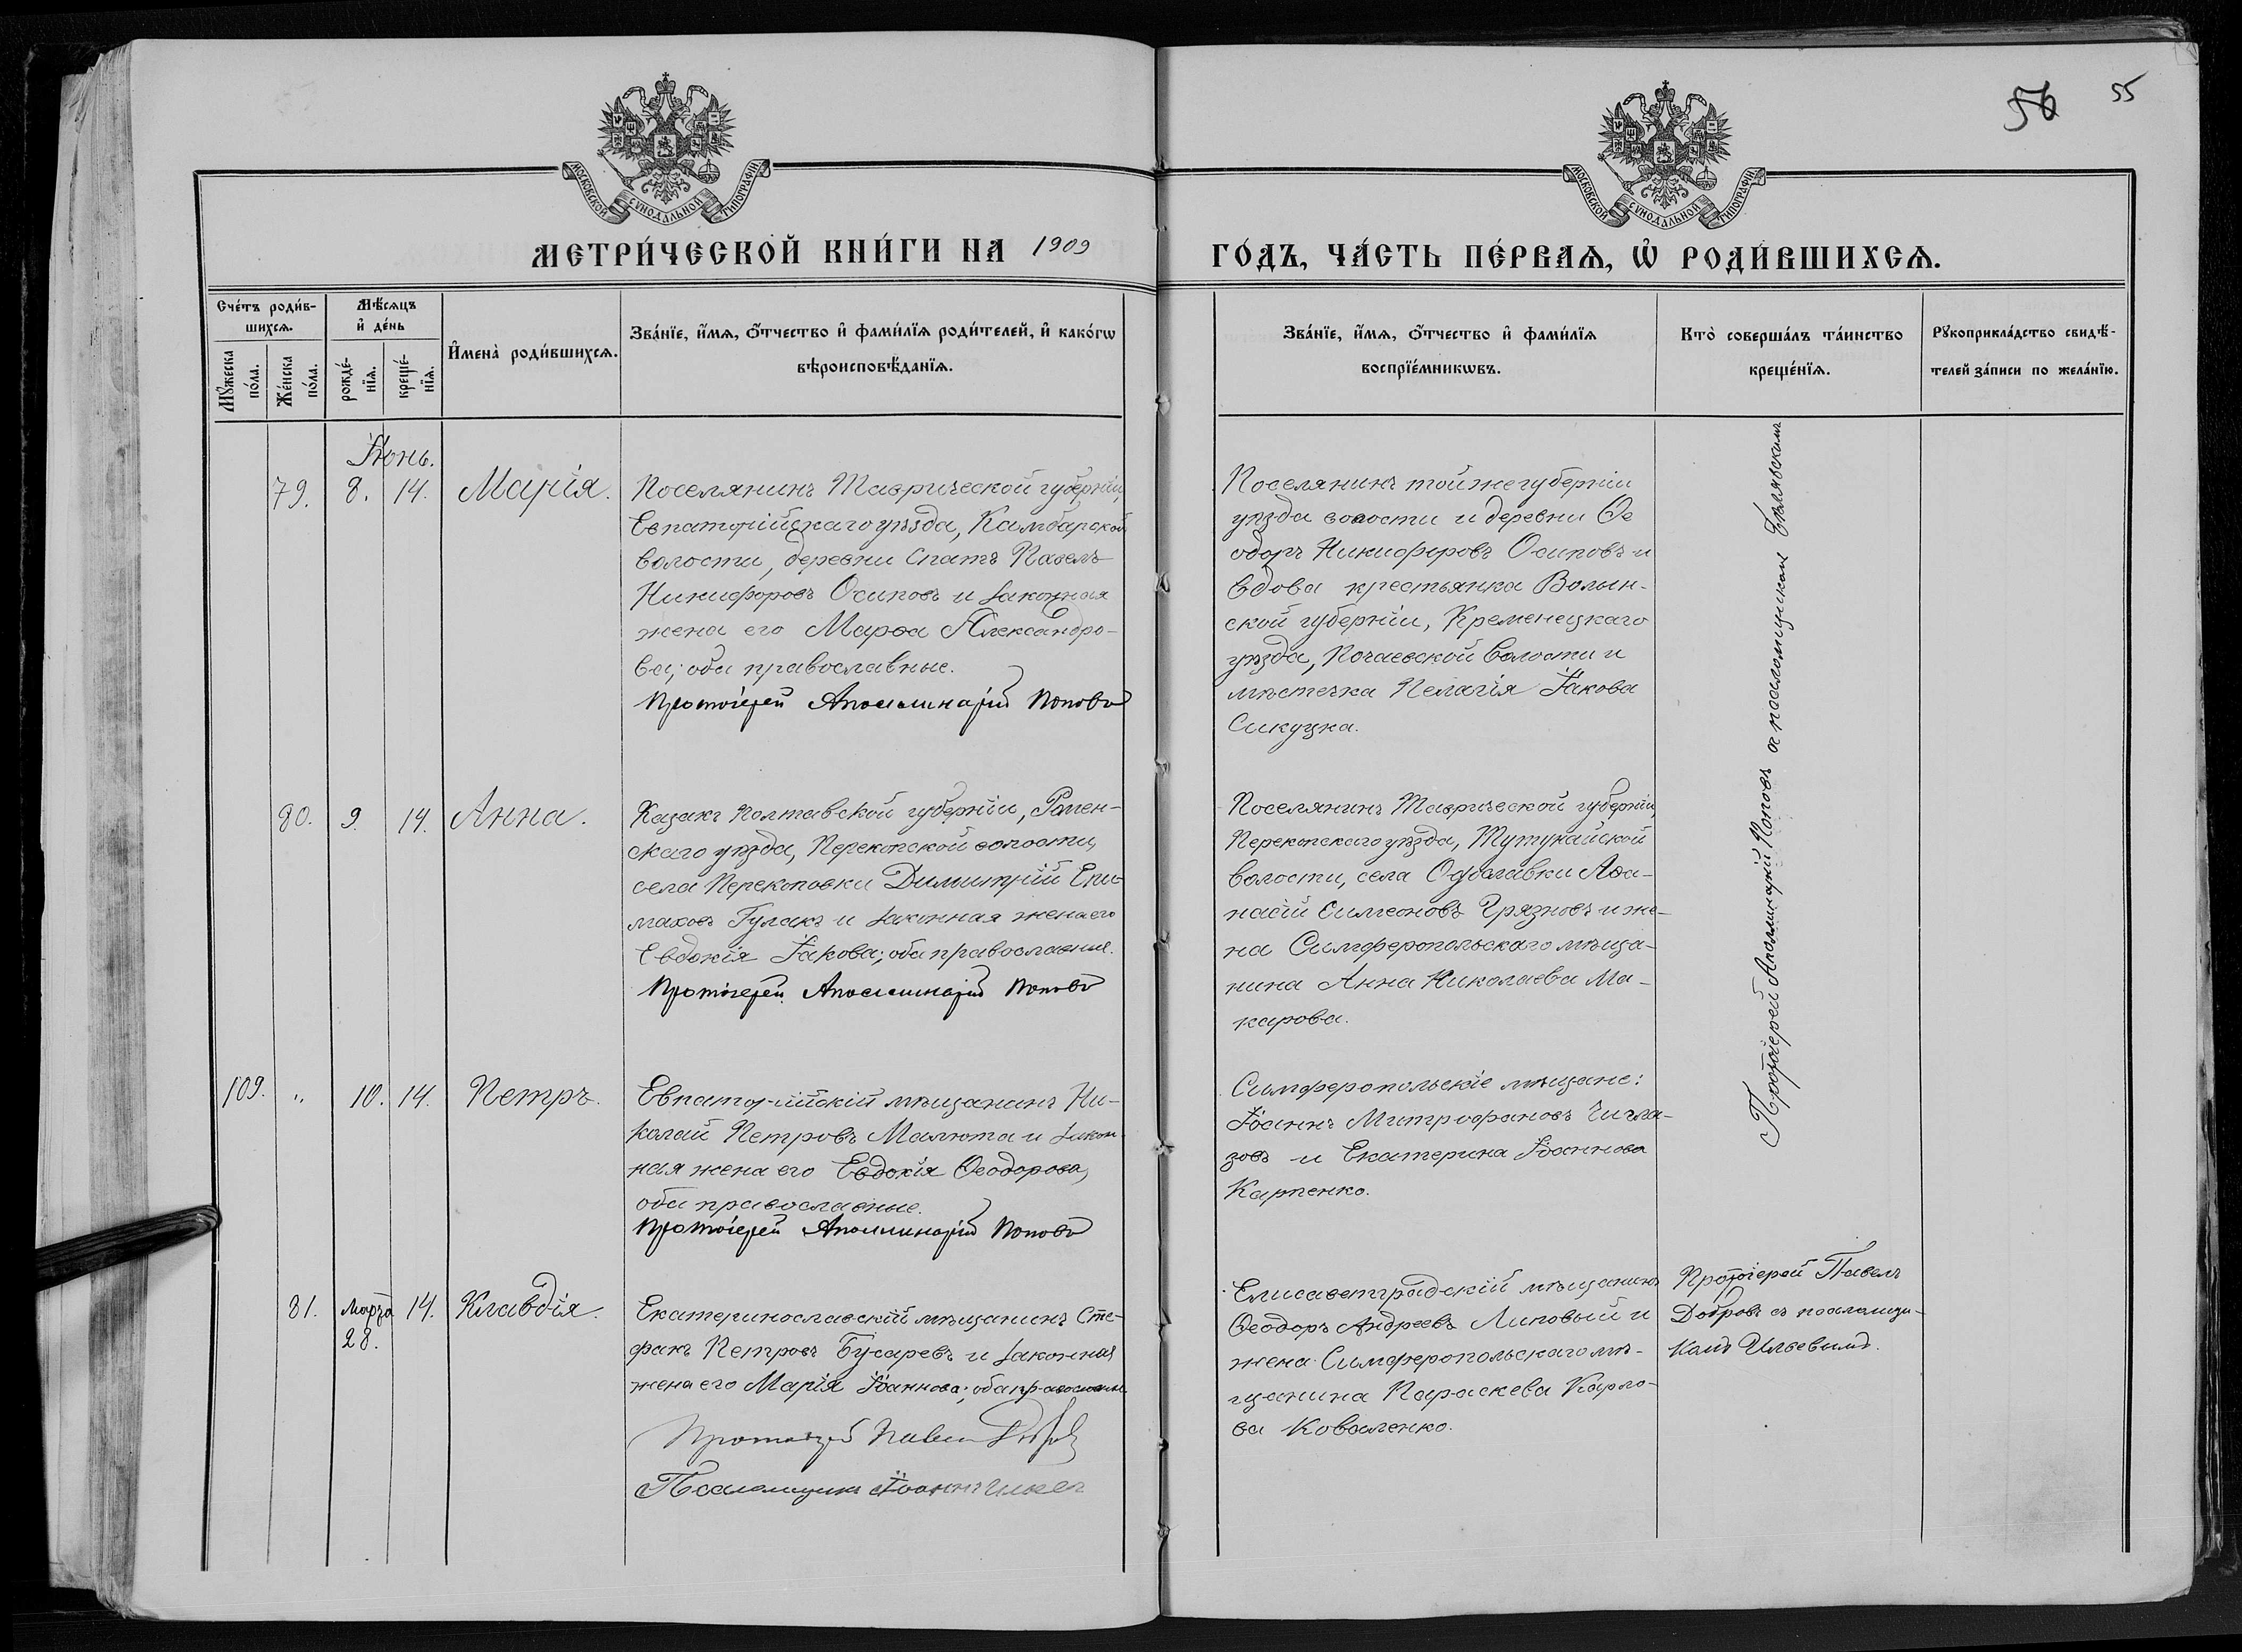 56 55
МОСКОВСКОЙ СУНОДАЛЬНОЙ ТИПОГРАФІИ
МОСКОВСКОЙ СУНОДАЛЬНОЙ ТИПОГРАФІИ
МЕТРИ́ЧЕСКОЙ КНИ́ГИ НА 1909
ГО́ДЪ, ЧА́СТЬ ПЕ́РВАѦ, Ѡ҆ РОДИ́ВШИХСѦ.
Сче́тъ роди́в-
шихсѧ.
Мꙋ́жеска
по́ла.
Же́нска
по́ла.
Мѣ́сѧцъ
и҆ де́нь
рожде́-
нїѧ.
креще́-
нїѧ.
И҆мена̀ роди́вшихсѧ.
Зва́нїе, и҆́мѧ, ѻ҆́тчество и҆ фами́лїѧ роди́телей, и҆ како́гѡ
вѣроисповѣ́данїѧ.
Зва́нїе, и҆́мѧ, ѻ҆́тчество и҆ фами́лїѧ
воспрїе́мникѡвъ.
Кто̀ соверша́лъ та́инство
креще́нїѧ.
Рꙋкоприкла́дство свидѣ́-
телей за́писи по жела́нїю.
Іюнь.
79. 8. 14. Марія.
Поселянинъ Таврической губерніи,
Евпаторійскаго уѣзда, Камбарской
волости, деревни Спатъ Павелъ
Никифоровъ Осиповъ и законная
жена его Марѳа Александро-
ва; оба православные.
Протоіерей Аполлинарій Поповъ
Поселянинъ той же губерніи
уѣзда волости и деревни Ѳе
одоръ Никифоровъ Осиповъ и
вдова крестьянка Волын-
ской губерніи, Кременецкаго
уѣзда, Почаевской волости и
мѣстечка Пелагія Іакова
Сикуцка.
Протоіерей Аполлинарій Поповъ съ псаломщикомъ
80. 9. 14. Анна.
Казакъ Полтавской губерніи, Ромен-
скаго уѣзда, Перекопской волости,
села Перекоповки Димитрій Епи-
маховъ Гулакъ и законная жена его
Евдокія Іакова; оба православные.
Протоіерей Аполлинарій Поповъ
Поселянинъ Таврической губерніи,
Перекопскаго уѣзда, Тутунайской
волости, села Аѳа-
насій Симеоновъ Грязновъ и же-
на Симферопольскаго мѣща-
нина Анна Николаева Ма-
карова.
109. " 10. 14. Петръ.
Евпаторійскій мѣщанинъ Ни-
колай Петровъ Малюта и закон
ная жена его Евдокія Ѳеодорова,
оба православные.
Протоіерей Аполлинарій Поповъ
Симферопольскіе мѣщане:
Іоаннъ Митрофановъ Чигла-
зовъ и Екатерина Іоаннова
Карпенко.
81. Марта 14. Клавдія.
28.
Екатеринославскій мѣщанинъ Сте-
фанъ Петровъ Бусаревъ и законная
жена его Марія Іоаннова; оба православные
Протоіерей Павелъ Добровъ
Псаломщикъ Іоаннъ Ильевъ
Елисаветградскій мѣщанинъ
Ѳеодоръ Андреевъ Липовый и
жена Симферопольскаго мѣ-
щанина Параскева Карло-
ва Коваленко.
Протоіерей Павелъ
Добровъ съ псаломщи-
комъ Ильевымъ.